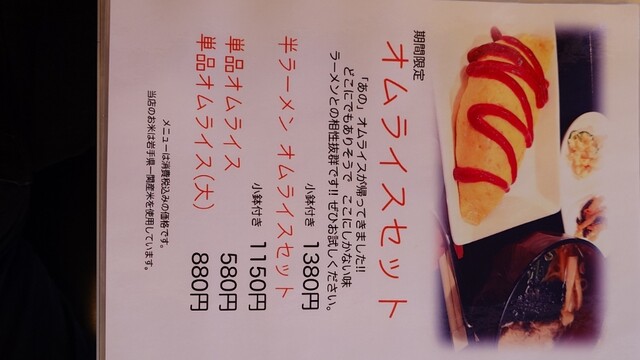 期間限定
オムライスセット
「あの」オムライスが帰ってきました!!
どこにでもありそうで ここにしかない味
ラーメンとの相性抜群です!!ぜひお試しください。
小鉢付き 1380円
半ラーメン オムライスセット
小鉢付き 1150円
単品オムライス 580円
単品オムライス(大) 880円
メニューは消費税込みの価格です。
当店のお米は岩手県一関産米を使用しています。